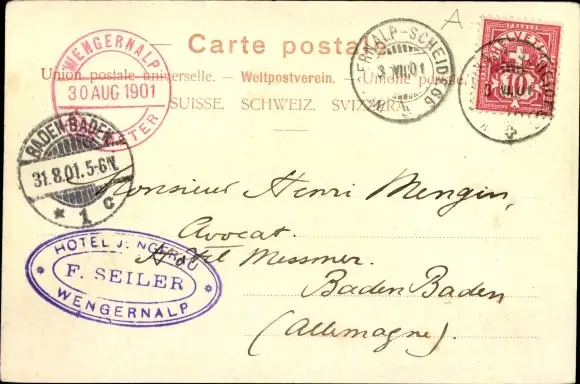 Carte postale.
Union postale universelle. — Weltpostverein. — Unione postale
SUISSE. SCHWEIZ. SVIZZERA.
WENGERNALP
30 AUG 1901
BADEN-BADEN
31.8.01.5-6N.
* 1 c
HOTEL JUNGFRAU
F. SEILER
WENGERNALP
HELVETIA
10
A
Monsieur Henri Mengin,
Avocat.
Hôtel Messmer.
Baden Baden
(Allemagne).